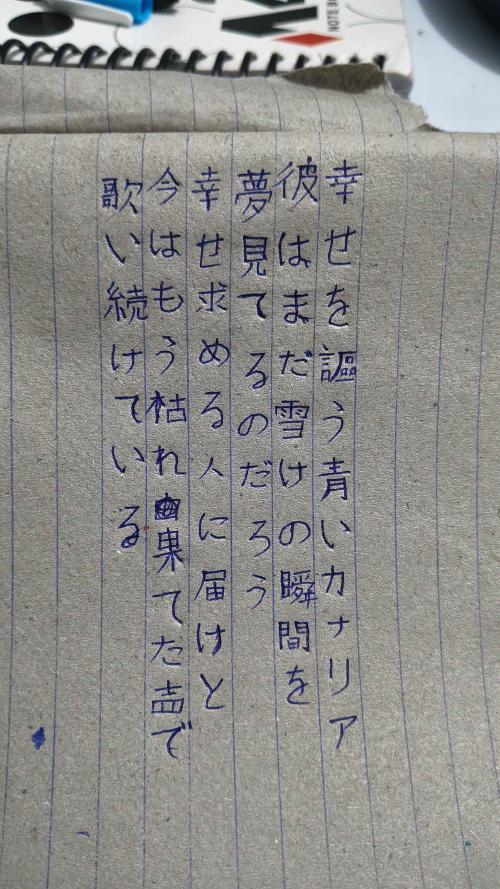 幸せを謳う青いカナリア
彼はまだ雪けの瞬間を
夢見てるのだろう
幸せ求める人に届けと
今はもう枯れ果てた声で
歌い続けている
NOTE B